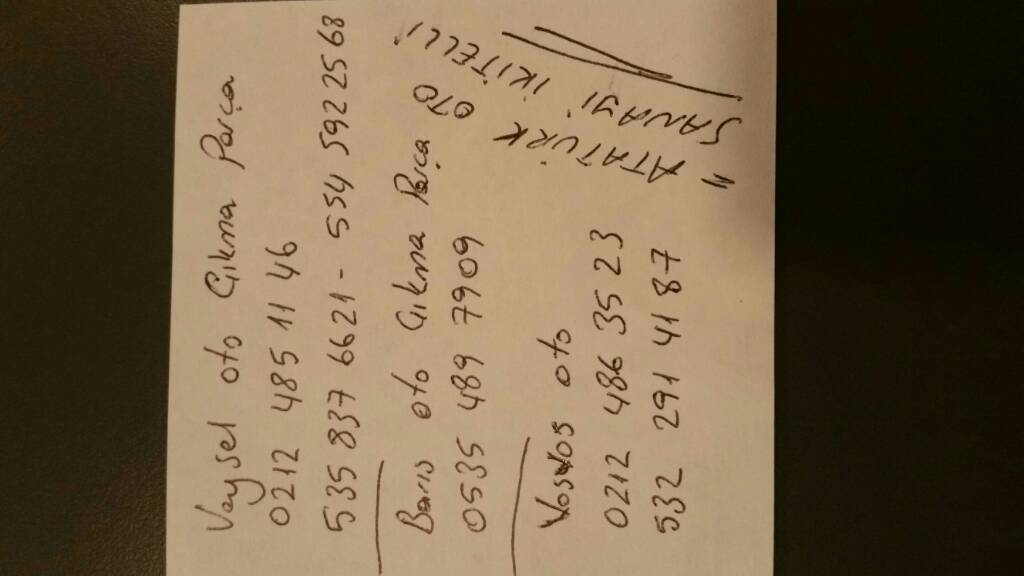 Veysel oto Çıkma Parça
0212 485 11 46
535 837 6621 - 554 592 25 68
Barıs oto Çıkma Parça
0535 489 7909
Vosvos oto
0212 486 35 23
532 291 41 87
" ATATÜRK OTO
SANAYİ İKİTELLİ